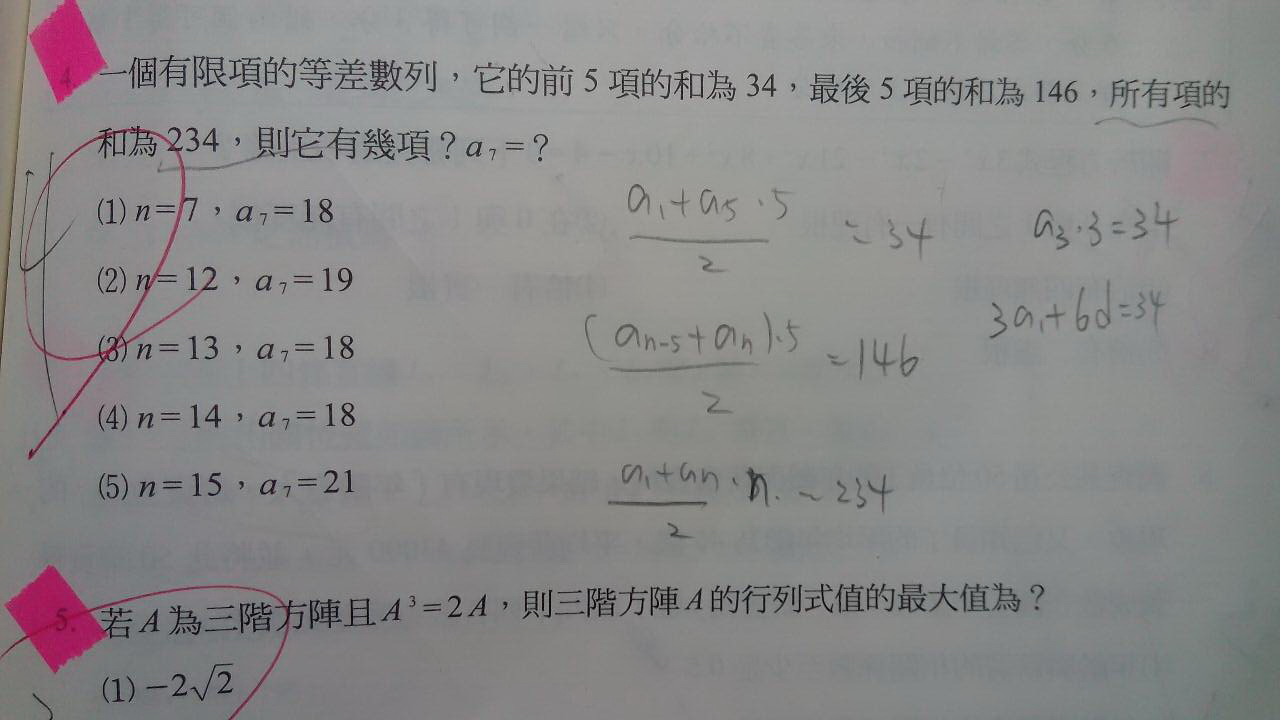 4. 一個有限項的等差數列，它的前 5 項的和為 34，最後 5 項的和為 146，所有項的
和為 234，則它有幾項？a₇=？
(1) n=7，a₇=18
(2) n=12，a₇=19
(3) n=13，a₇=18
(4) n=14，a₇=18
(5) n=15，a₇=21
a₁+a₅·5 / 2 = 34
a₃·3=34
3a₁+6d=34
(aₙ₋₅+aₙ)·5 / 2 = 146
a₁+aₙ·n / 2 = 234
5. 若 A 為三階方陣且 A³=2A，則三階方陣 A 的行列式值的最大值為？
(1) −2√2